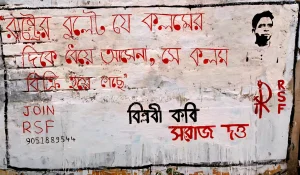 রাষ্ট্রের বুলেট, যে কলমের
দিকে ধেয়ে আসেনা, সে কলম
বিক্রি হয়ে গেছে
JOIN
RSF
9051889544
বিপ্লবী কবি
সরোজ দত্ত
RSF